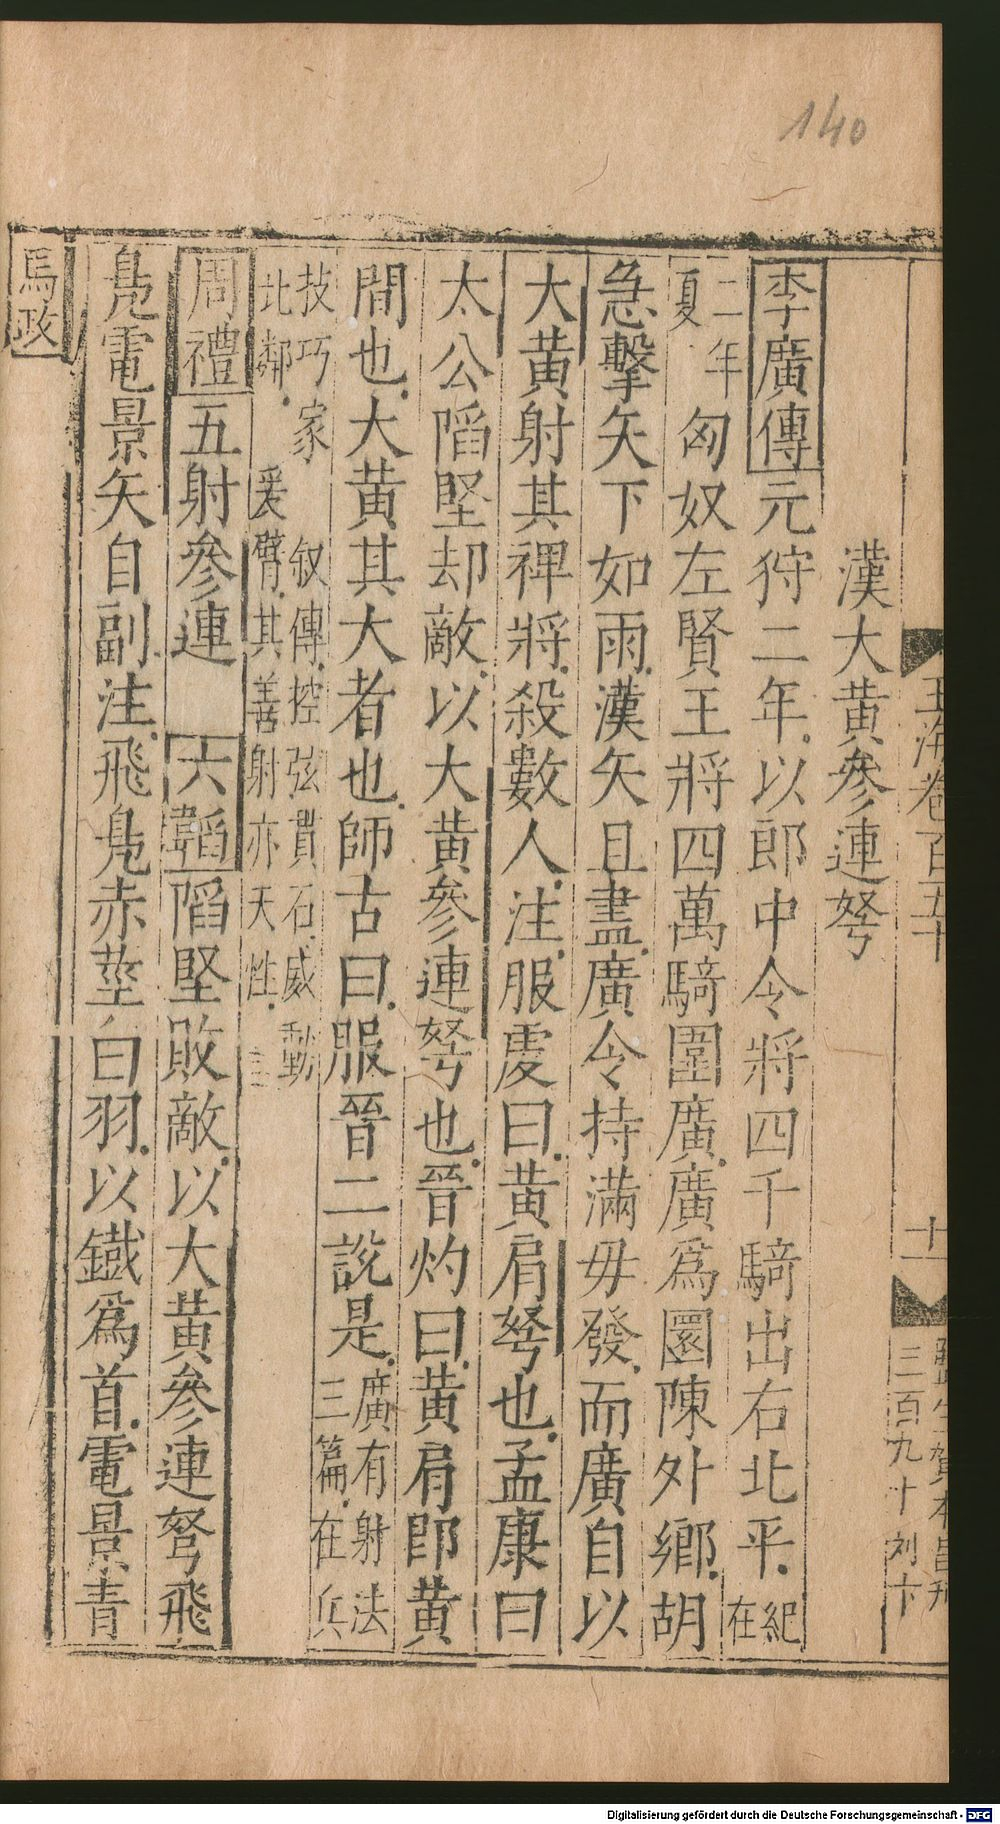 140
玉海卷百五十
十一
三百九十 刘卞
漢大黄參連弩
李廣傳元狩二年以郎中令將四千騎出右北平紀在
二年夏匈奴左賢王將四萬騎圍廣廣爲圜陳外鄉胡
急擊矢下如雨漢矢且盡廣令持滿毋發而廣自以
大黄射其裨將殺數人注服虔曰黄肩弩也孟康曰
太公陷堅却敵以大黄參連弩也晉灼曰黄肩即黄
間也大黄其大者也師古曰服晉二說是廣有射法三篇在兵
技巧家北鄰 叙傳控弦貫石威動爰臂其善射亦天性
周禮五射參連 六韜陷堅敗敵以大黄參連弩飛
鳬電景矢自副注飛鳬赤莖白羽以鐵爲首電景青
馬政
Digitalisierung gefördert durch die Deutsche Forschungsgemeinschaft - DFG